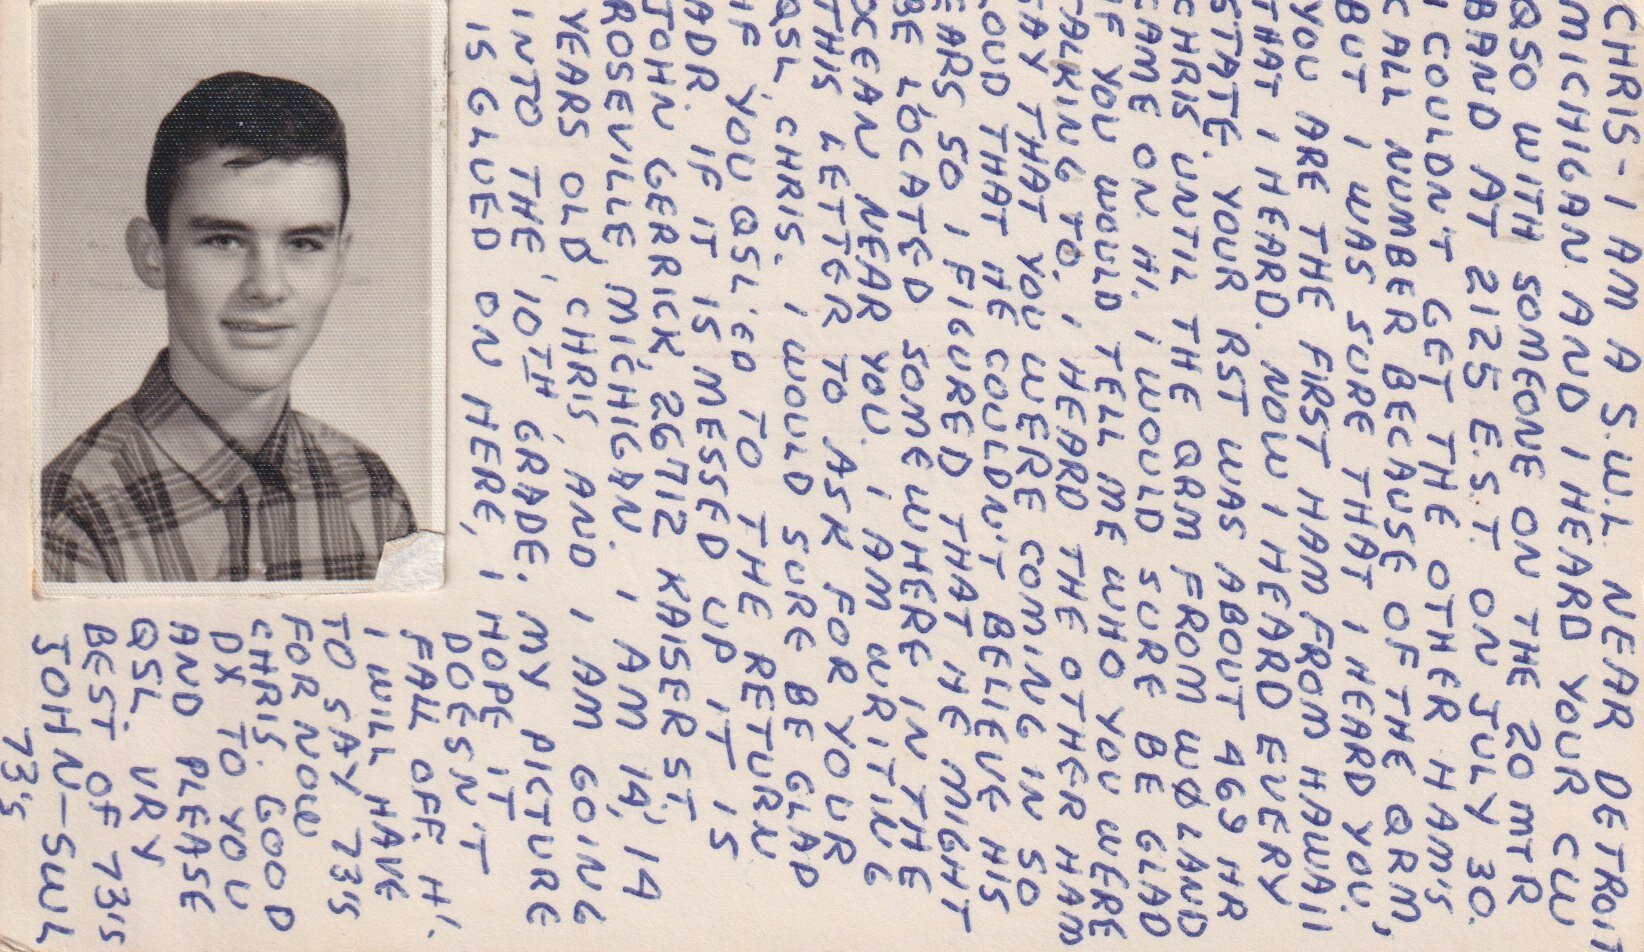 CHRIS - I AM A S.W.L. NEAR DETROIT
MICHIGAN AND I HEARD YOUR CW
QSO WITH SOMEONE ON THE 20 MTR
BAND AT 2125 E.S.T. ON JULY 30.
I COULDN'T GET THE OTHER HAM'S
CALL NUMBER BECAUSE OF THE QRM,
BUT I WAS SURE THAT I HEARD YOU.
YOU ARE THE FIRST HAM FROM HAWAII
THAT I HEARD. NOW I HEARD EVERY
STATE. YOUR RST WAS ABOUT 469 HR
CHRIS UNTIL THE QRM FROM WØ LAND
CAME ON. HI. I WOULD SURE BE GLAD
IF YOU WOULD TELL ME WHO YOU WERE
TALKING TO. I HEARD THE OTHER HAM
SAY THAT YOU WERE COMING IN SO
LOUD THAT HE COULDN'T BELIEVE HIS
EARS SO I FIGURED THAT HE MIGHT
BE LOCATED SOMEWHERE IN THE
OCEAN NEAR YOU. I AM WRITING
THIS LETTER TO ASK FOR YOUR
QSL CHRIS. I WOULD SURE BE GLAD
IF YOU QSL'ED TO THE RETURN
ADR. IF IT IS MESSED UP IT IS
JOHN GERICK, 26712 KAISER ST.
ROSEVILLE, MICHIGAN. I AM 14, 14
YEARS OLD CHRIS, AND I AM GOING
INTO THE 10TH GRADE. MY PICTURE
IS GLUED ON HERE, I HOPE IT
DOESN'T
FALL OFF. HI.
I WILL HAVE
TO SAY 73'S
FOR NOW
CHRIS. GOOD
DX TO YOU
AND PLEASE
QSL. VRY
BEST OF 73'S
JOHN-SWL
73'S